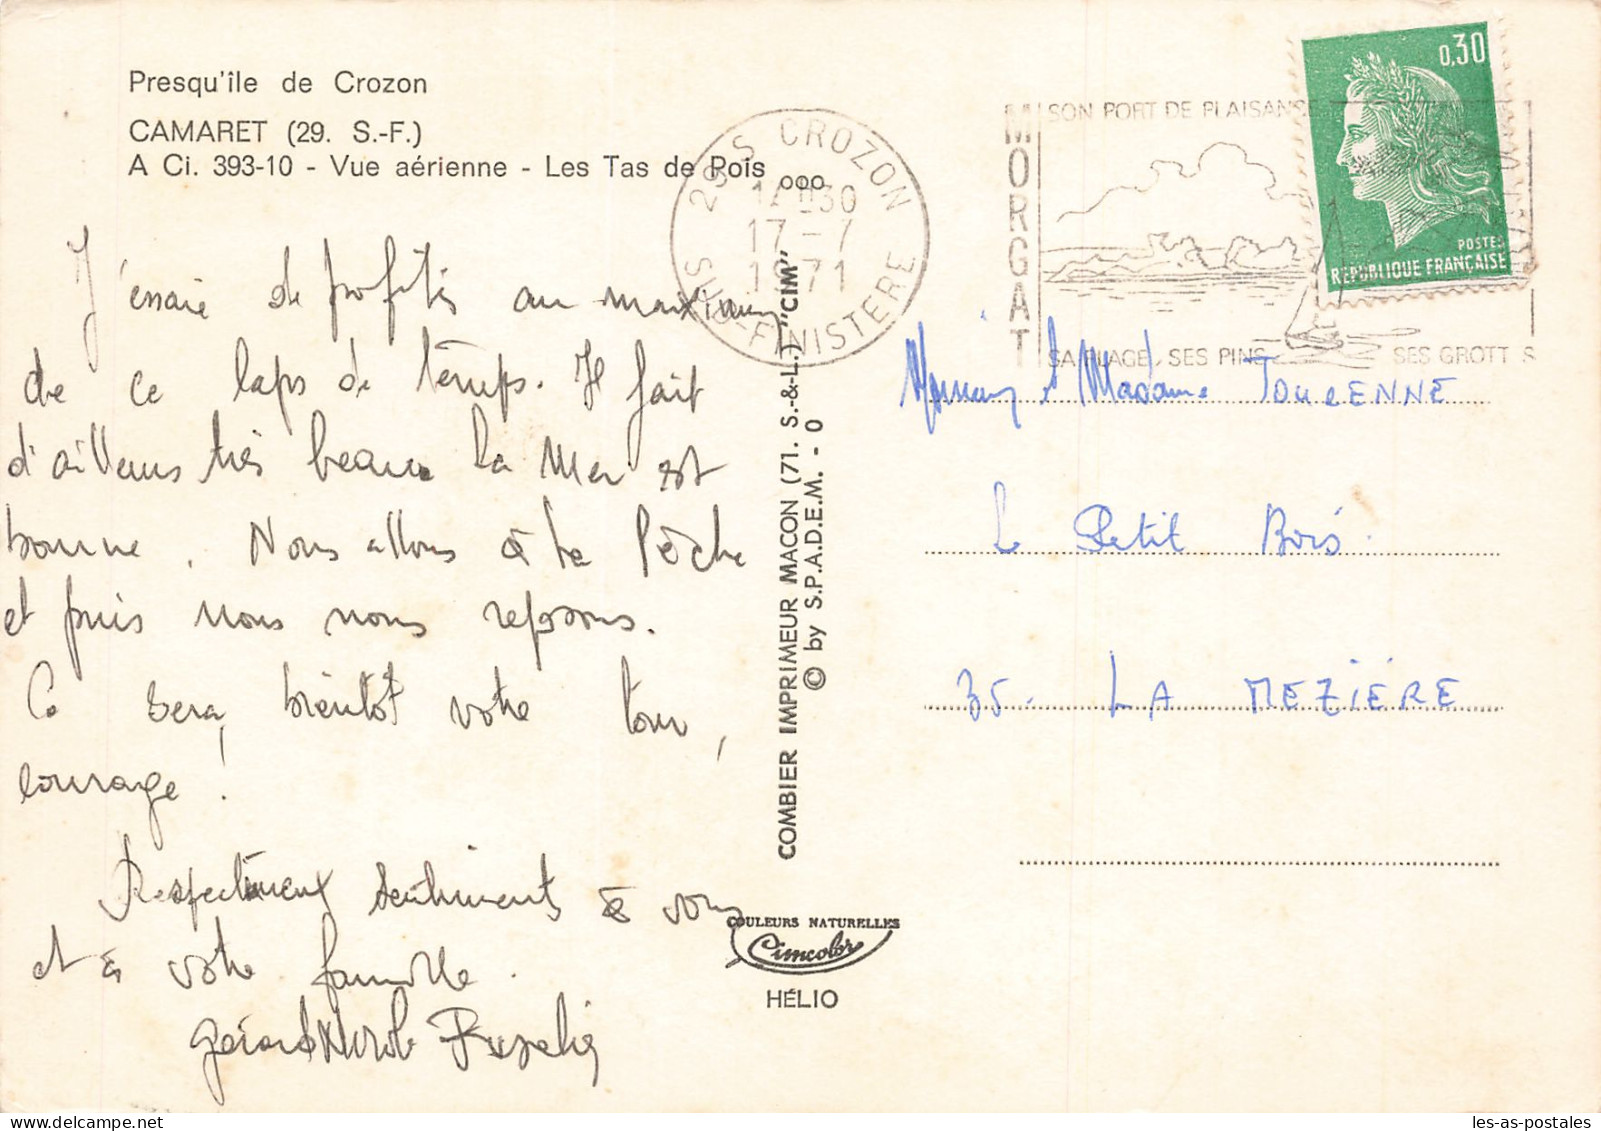 Presqu'île de Crozon
CAMARET (29. S.-F.)
A Ci. 393-10 - Vue aérienne - Les Tas de Pois ooo
J'essaie de profiter au maximum
de ce laps de temps. Il fait
d'ailleurs très beau la Mer est
bonne. Nous allons à la Pêche
et puis nous nous reposons.
Ce sera bientôt votre tour,
courage !
Respectueux sentiments à vous
et à votre famille.
Gérard Nicole
COMBIER IMPRIMEUR MACON (71. S.-&-L.) "CIM"
© by S.P.A.D.E.M. - 0
COULEURS NATURELLES
Cimcolor
HÉLIO
29 S CROZON
14H30
17-7
1971
SUD-FINISTERE
MORGAT
SON PORT DE PLAISANSE
SA PLAGE, SES PINS
SES GROTT S
0,30
POSTES
REPUBLIQUE FRANÇAISE
Monsieur et Madame TOURENNE
Le Petit Bois.
35. LA MEZIÈRE
les-as-postales